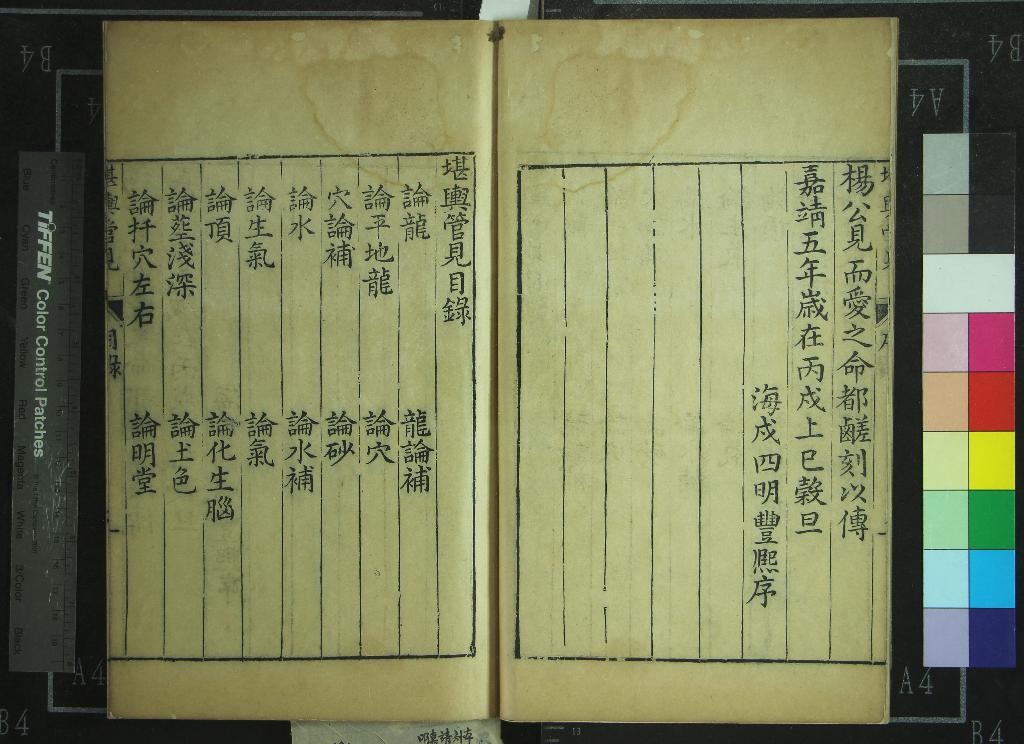 楊公見而愛之命都鹺刻以傳
嘉靖五年歲在丙戌上巳穀旦
海戍四明豐熈序
堪輿管見目錄
論龍 龍論補
論平地龍 論穴
穴論補 論砂
論水 論水補
論生氣 論氣
論頂 論化生腦
論塟淺深 論土色
論扦穴左右 論明堂
堪輿管見 目錄 一
TIFFEN Color Control Patches
Blue Cyan Green Yellow Red Magenta White 3/Color Black
B4
A4
A4
B4
A4
B4
A4
B4